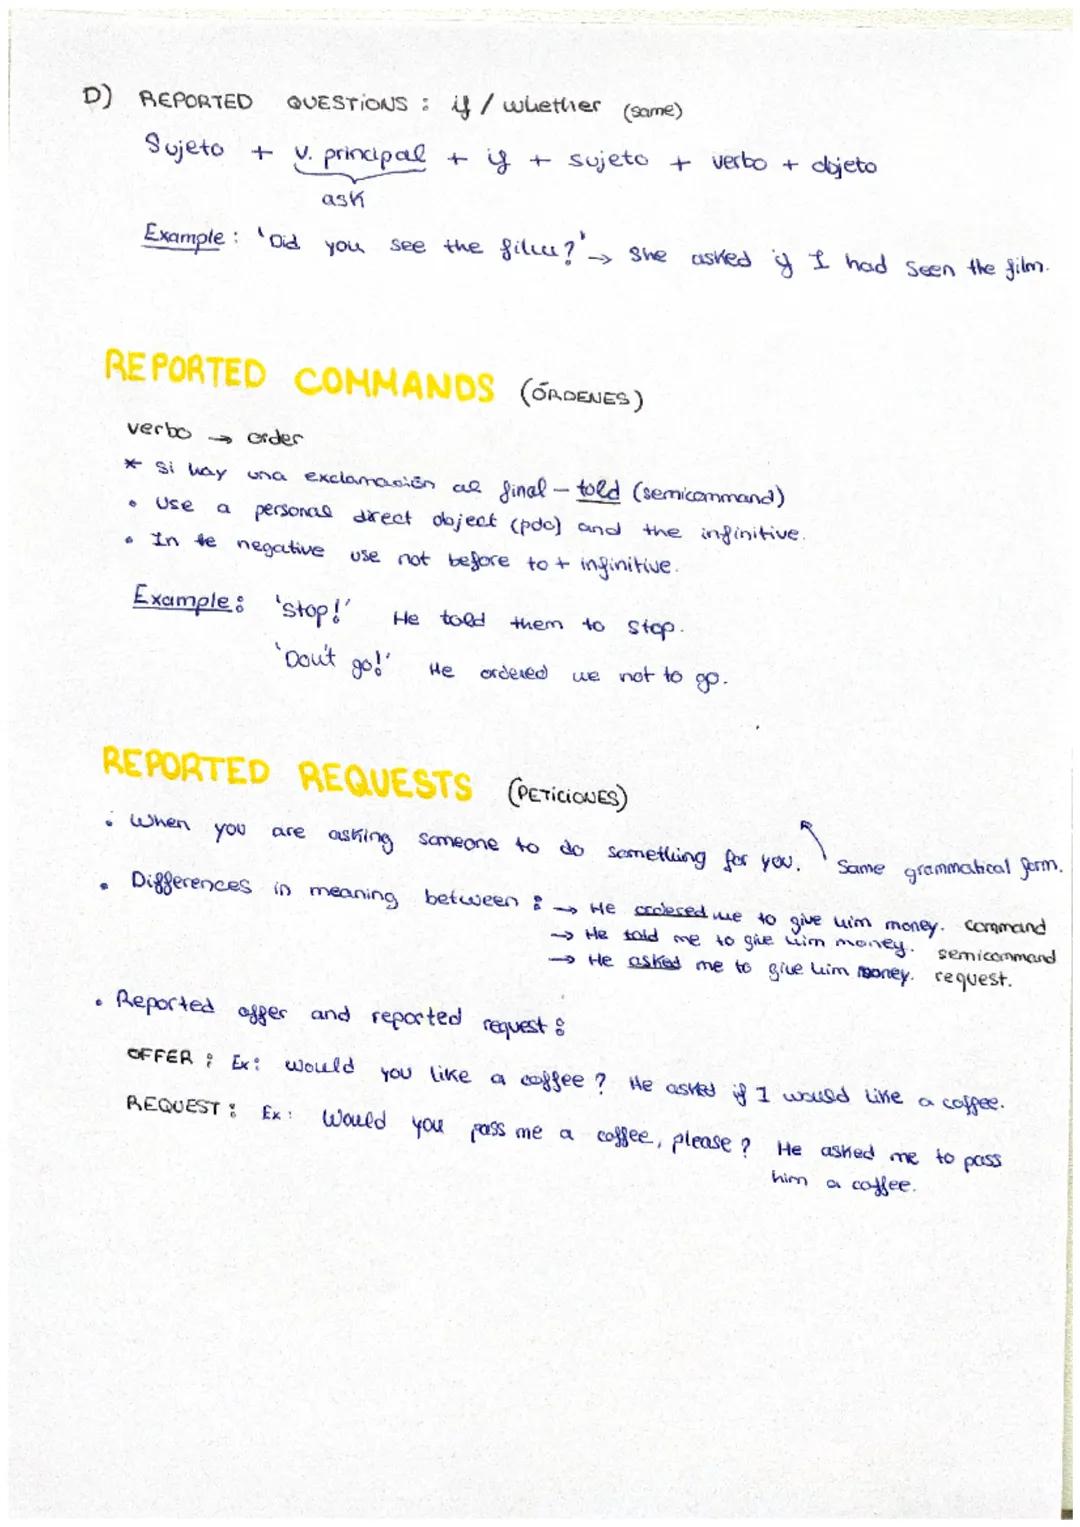 D) REPORTED QUESTIONS : if / whether (same)
Sujeto + v. principal + if + sujeto + verbo + objeto
ask
Example : 'Did you see the film?' → She asked if I had seen the film.
REPORTED COMMANDS (ÓRDENES)
verbo → order
* Si hay una exclamación al final – told (semicommand)
• Use a personal direct object (pdo) and the infinitive.
• In te negative use not before to + infinitive.
Example: 'Stop!' He told them to stop.
'Don't go!' He ordered me not to go.
REPORTED REQUESTS (PETICIONES)
• When you are asking someone to do something for you. Same grammatical form.
• Differences in meaning between : → He ordered me to give him money. command
→ He told me to give him money. semicommand
→ He asked me to give him money. request.
• Reported offer and reported request :
OFFER : Ex: Would you like a coffee ? He asked if I would like a coffee.
REQUEST : Ex: Would you pass me a coffee, please ? He asked me to pass
him a coffee.